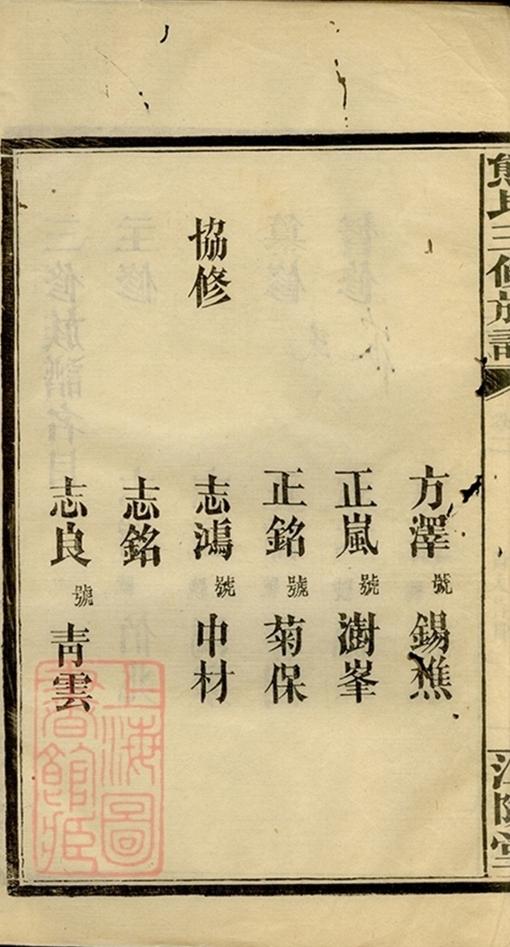 熊氏三修族譜
江陵堂
方澤號錫樵
正嵐號澍峯
正銘號菊保
協修
志鴻號中材
志銘
志良號青雲
上海圖書館藏